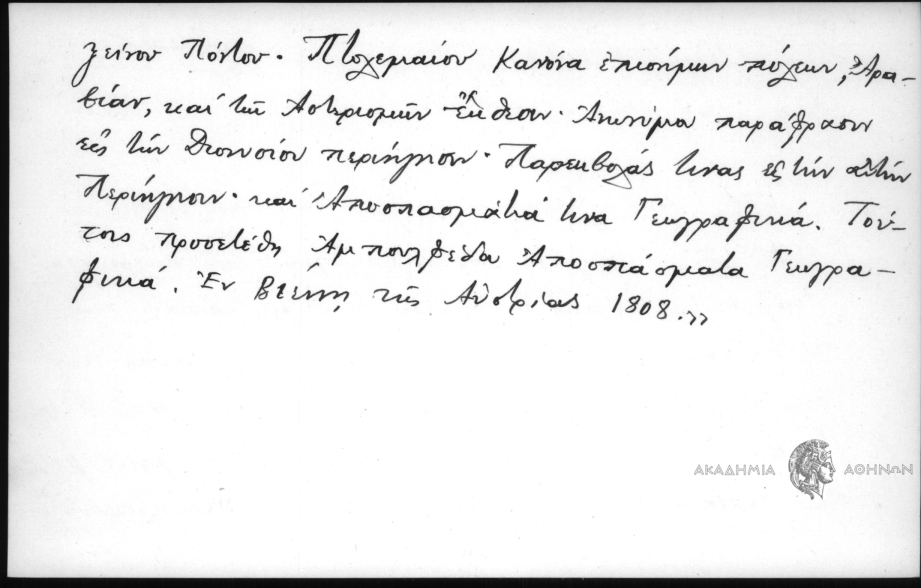 ξείνου Πόντου. Πτολεμαίου Κανόνα ἐπισήμων πόλεων, Ἀρα-
βίαν, καὶ τῶν Ἀστερισμῶν ἔκθεσιν. Ἀνωνύμου παράφρασιν
εἰς τὴν Διονυσίου περιήγησιν. Παρεκβολάς τινας ἐξ τὴν αὐτὴν
Περιήγησιν. καὶ Ἀποσπασμάτιά τινα Γεωγραφικά. Τού-
τοις προσετέθη Ἀμπουλφέδα Ἀποσπάσματα Γεωγρα-
φικά. Ἐν Βιέννῃ τῆς Αὐστρίας 1808.»
ΑΚΑΔΗΜΙΑ ΑΘΗΝΩΝ